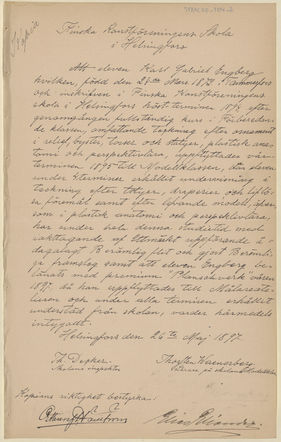 Kopia
Finska Konstföreningens Skola
i Helsingfors
Att eleven Karl Gabriel Engberg
hvilken, född den 28de Mars 1872 i
och inskrifven i Finska Konstföreningens
skola i Helsingfors höstterminen efter
genomgången fullständig kurs i Förberedan-
de klassen, omfattande teckning efter ornament
i relief, byster, torser och statyer, plastisk ana-
tomi och perspektivlära, uppflyttades vår-
terminen 1895 till Modellklassen,
under terminer erhållit undervisning i
teckning efter statyer, draperier och liflö-
sa föremål samt efter lefvande modell,
som i plastisk anatomi och perspektivlära,
har under hela denna studietid med
iakttagande af utmärkt uppförande å-
dagalagt Berömlig flit och gjort Berömli-
ga framsteg samt att eleven Engberg be-
lönats med premium våren
1897, då han uppflyttades till Målareate-
lieren och under alla terminer erhållit
understöd från skolan, varder härmedels
intygadt.
Helsingfors den 26te Maj 1897.
Th. Decker. Thorsten Waenerberg.
Skolans inspektor
Kopians riktighet bestyrka: